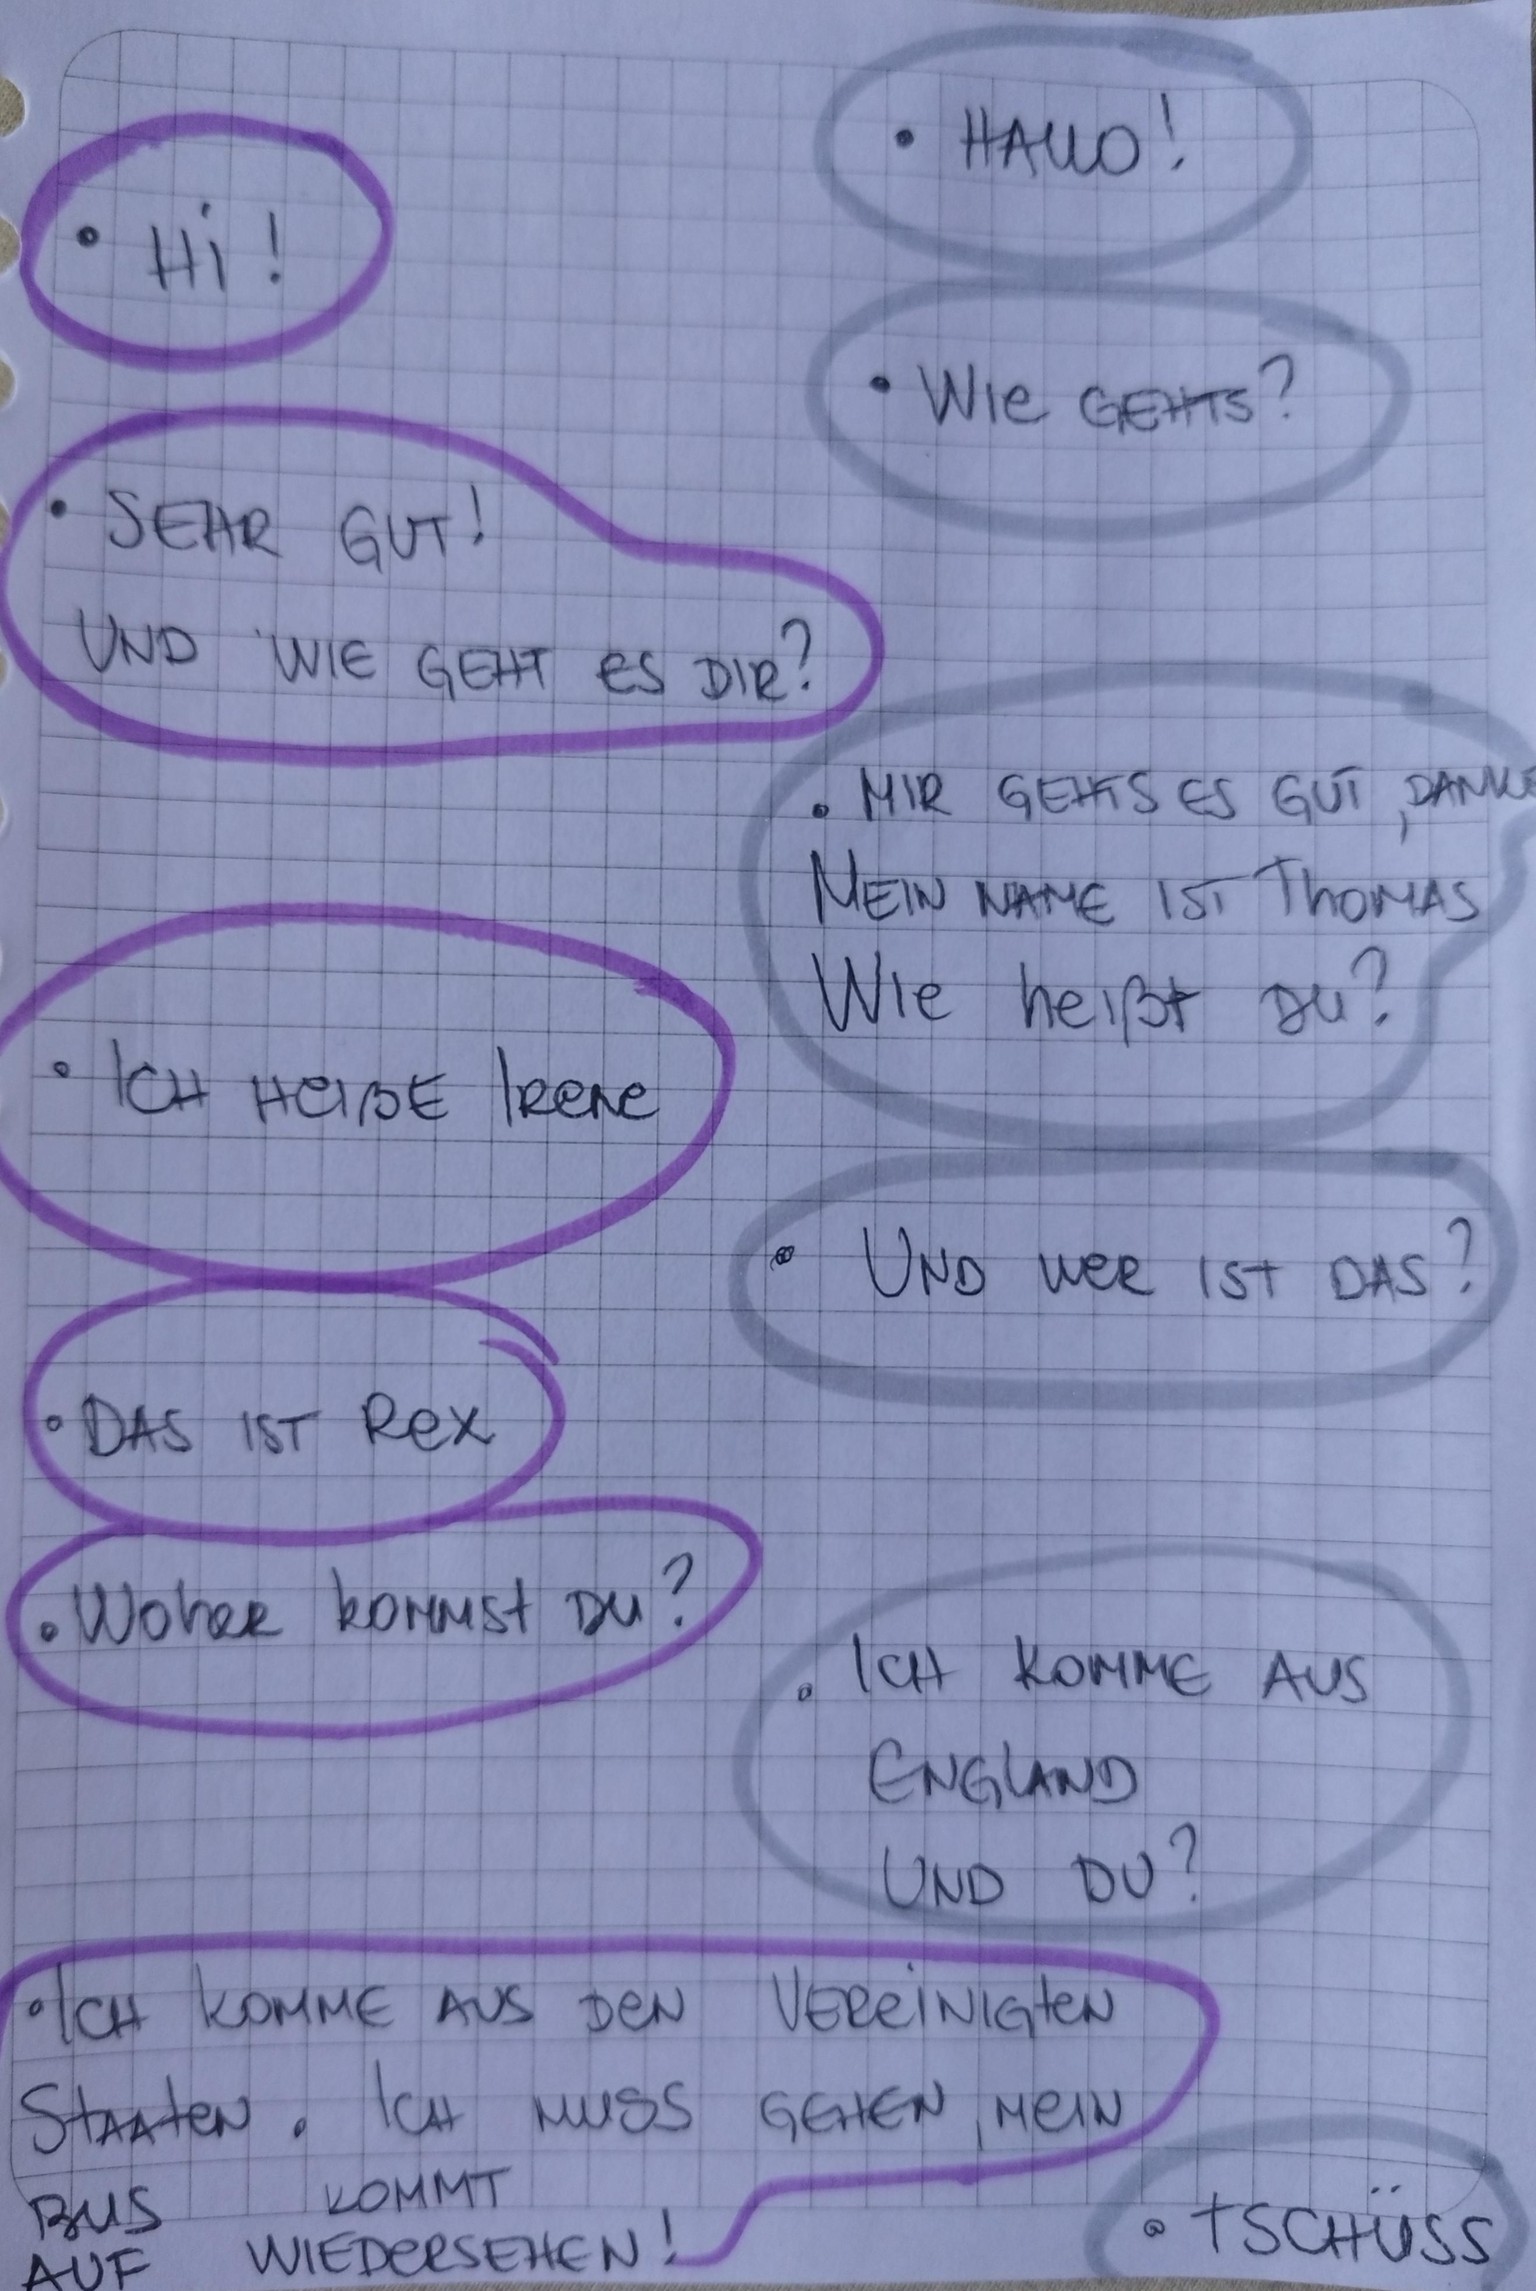 • HALLO!
• Hi!
• Wie GEHTS?
• SEHR GUT!
UND WIE GEHT ES DIR?
• MIR GEHTS ES GUT, DANKE
MEIN NAME IST ThOMAS
WIe heißt DU?
• ICH HEIßE IReNe
• UND WER IST DAS?
• DAS IST Rex
• Woher kommst DU?
• ICH KOMME AUS
ENGLAND
UND DU?
• ICH KOMME AUS DEN VEREiNIGtEN
StAAtEN. ICH MUSS GEHEN, MEIN
BUS KOMMT
AUF WIEDERSEHEN!
• TSCHÜSS